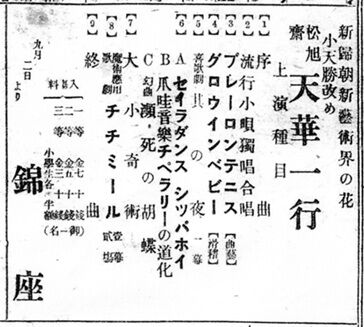 新歸朝新藝術界の花
小天勝改め
松旭齋 天華一行
上演種目
【1】序曲
【2】流行小唄獨唱合唱
【3】プレーロンテニス【曲藝】
【4】グロウインベビー【滑稽】
【5】喜歌劇 其の夜 一幕
【6】A セイラダンス シツパホイ
B 爪哇音樂チペラリーの道化
C 幻曲 瀕死の胡蝶
【7】大小奇術
【8】魔術應用歌劇 チチミール 壹幕貳塲
【9】終曲
九月二日より
入塲料
一等金七十錢
二等金五十錢
三等金三十錢
小學生各半額
錦座